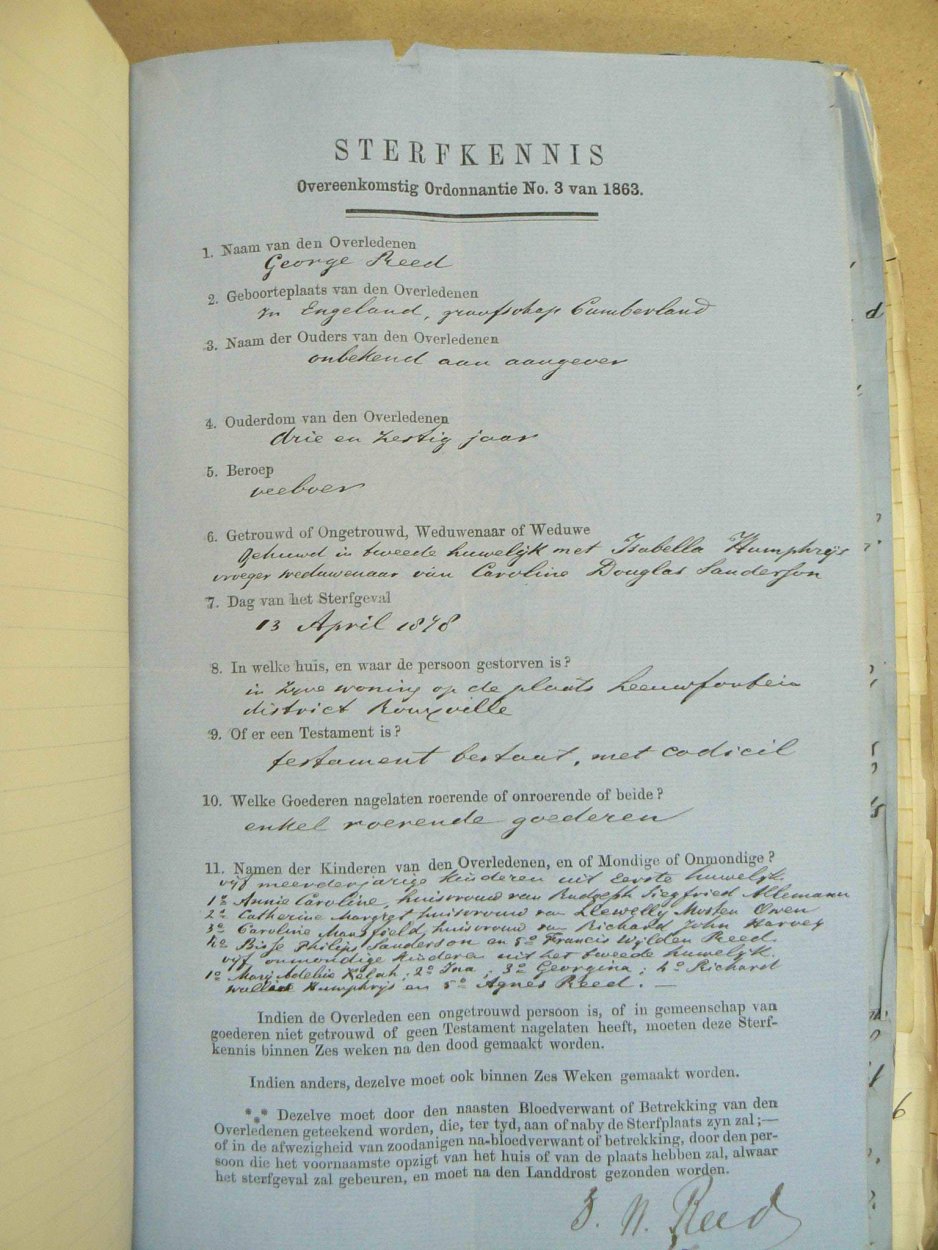 STERFKENNIS
Overeenkomstig Ordonnantie No. 3 van 1863.
1. Naam van den Overledenen
George Reed
2. Geboorteplaats van den Overledenen
In Engeland, graafschap Cumberland
3. Naam der Ouders van den Overledenen
onbekend aan aangever
4. Ouderdom van den Overledenen
drie en zestig jaar
5. Beroep
veeboer
6. Getrouwd of Ongetrouwd, Weduwenaar of Weduwe
Gehuwd in tweede huwelijk met Isabella Humphrijs
vroeger weduwenaar van Caroline Douglas Sanderson
7. Dag van het Sterfgeval
13 April 1878
8. In welke huis, en waar de persoon gestorven is?
in zyne woning op de plaats Leeuwfontein
district Rouxville
9. Of er een Testament is?
testament bestaat, met codicil
10. Welke Goederen nagelaten roerende of onroerende of beide?
enkel roerende goederen
11. Namen der Kinderen van den Overledenen, en of Mondige of Onmondige?
vijf meerderjarige kinderen uit eerste huwelijk
1o Annie Caroline, huisvrouw van Rudolph Siegfried Allemann
2o Catherine Margret huisvrouw van Llewelly Mosten Owen
3o Caroline Mansfield, huisvrouw van Richard John Harvey
4o Bisse Philips Sanderson en 5o Francis Wylden Reed.
vijf onmondige kinderen uit het tweede huwelijk.
1o Mary Adelia 2o Ina; 3o Georgina; 4o Richard
Humphrijs en 5o Agnes Reed. —
Indien de Overleden een ongetrouwd persoon is, of in gemeenschap van
goederen niet getrouwd of geen Testament nagelaten heeft, moeten deze Sterf-
kennis binnen Zes weken na den dood gemaakt worden.
Indien anders, dezelve moet ook binnen Zes Weken gemaakt worden.
*** Dezelve moet door den naasten Bloedverwant of Betrekking van den
Overledenen geteekend worden, die, ter tyd, aan of naby de Sterfplaats zyn zal;—
of in de afwezigheid van zoodanigen na-bloedverwant of betrekking, door den per-
soon die het voornaamste opzigt van het huis of van de plaats hebben zal, alwaar
het sterfgeval zal gebeuren, en moet na den Landdrost gezonden worden.
Reed